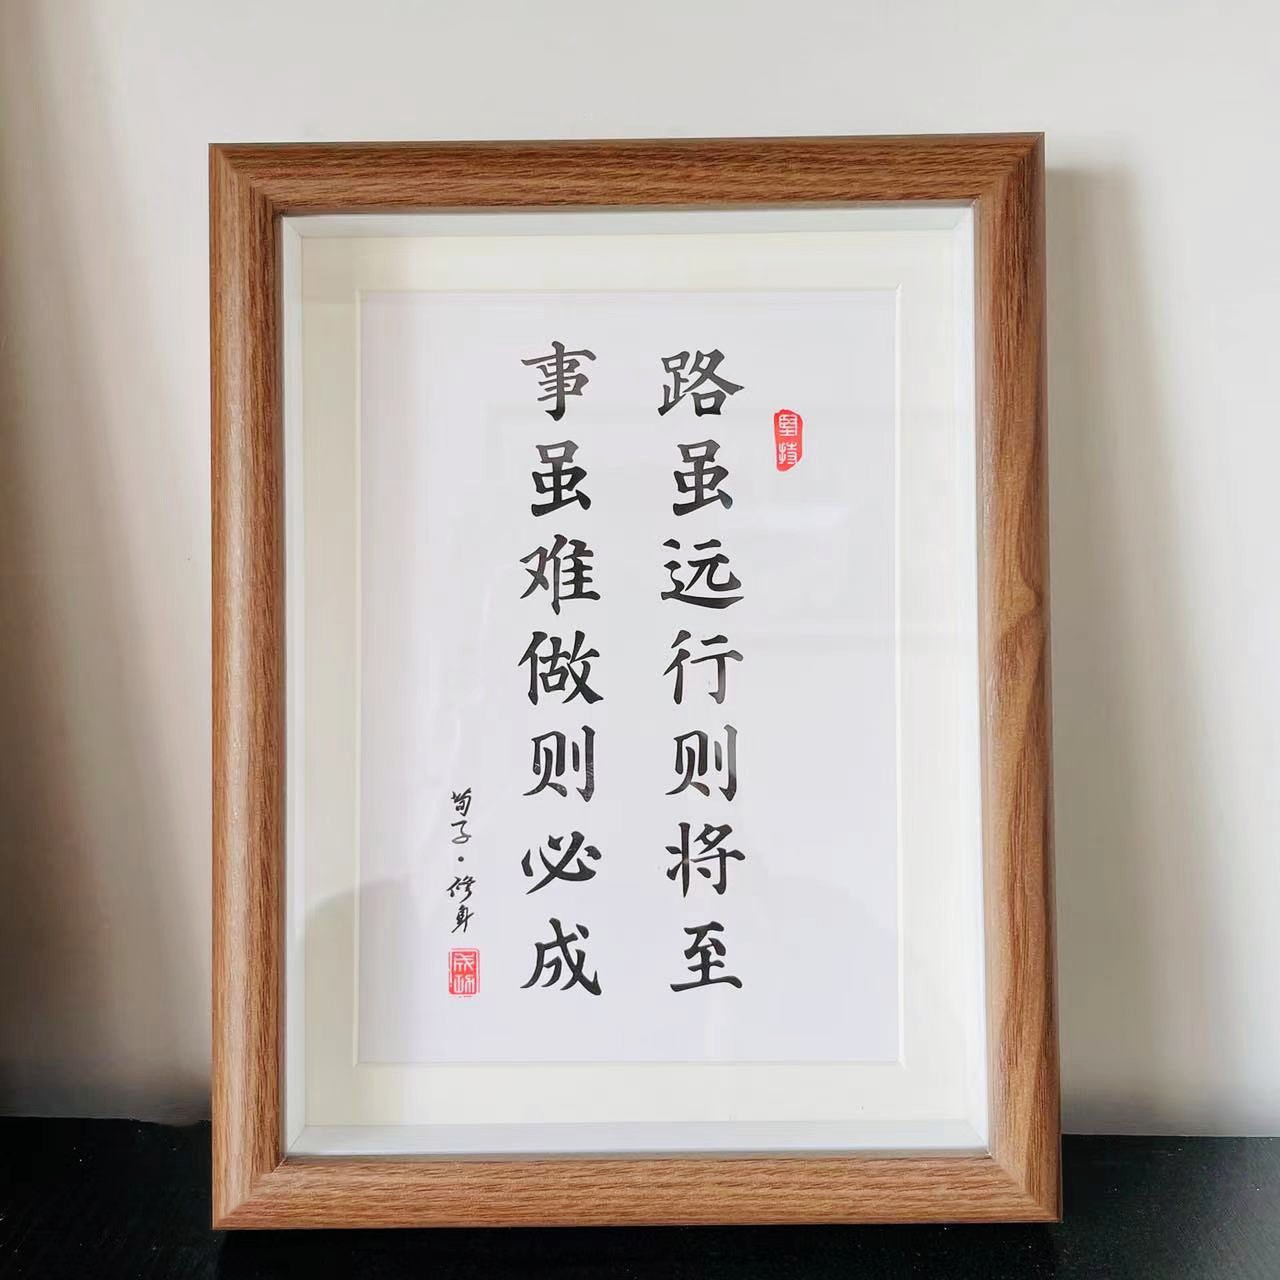 坚持
路虽远行则将至
事虽难做则必成
荀子·修身
成功